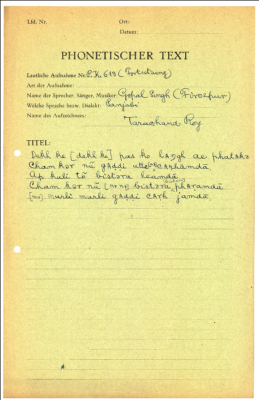 Lfd. Nr.
Ort:
Datum:
PHONETISCHER TEXT
Lautliche Aufnahme Nr. P.K. 613 (Fortsetzung)
Art der Aufnahme:
Name der Sprecher, Sänger, Musiker: Gopal Singh (Firozpur)
Welche Sprache bzw. Dialekt: Panjabi
Name des Aufzeichners:
Tarachand Roy
TITEL:
Dekh ke [dekh ke] pas ko ae phatako
Cham kor nũ gaddi
Ap kuli te bistora
Cham kor nũ bistora pharamdũ
murli murli gaddi carh jamdũ